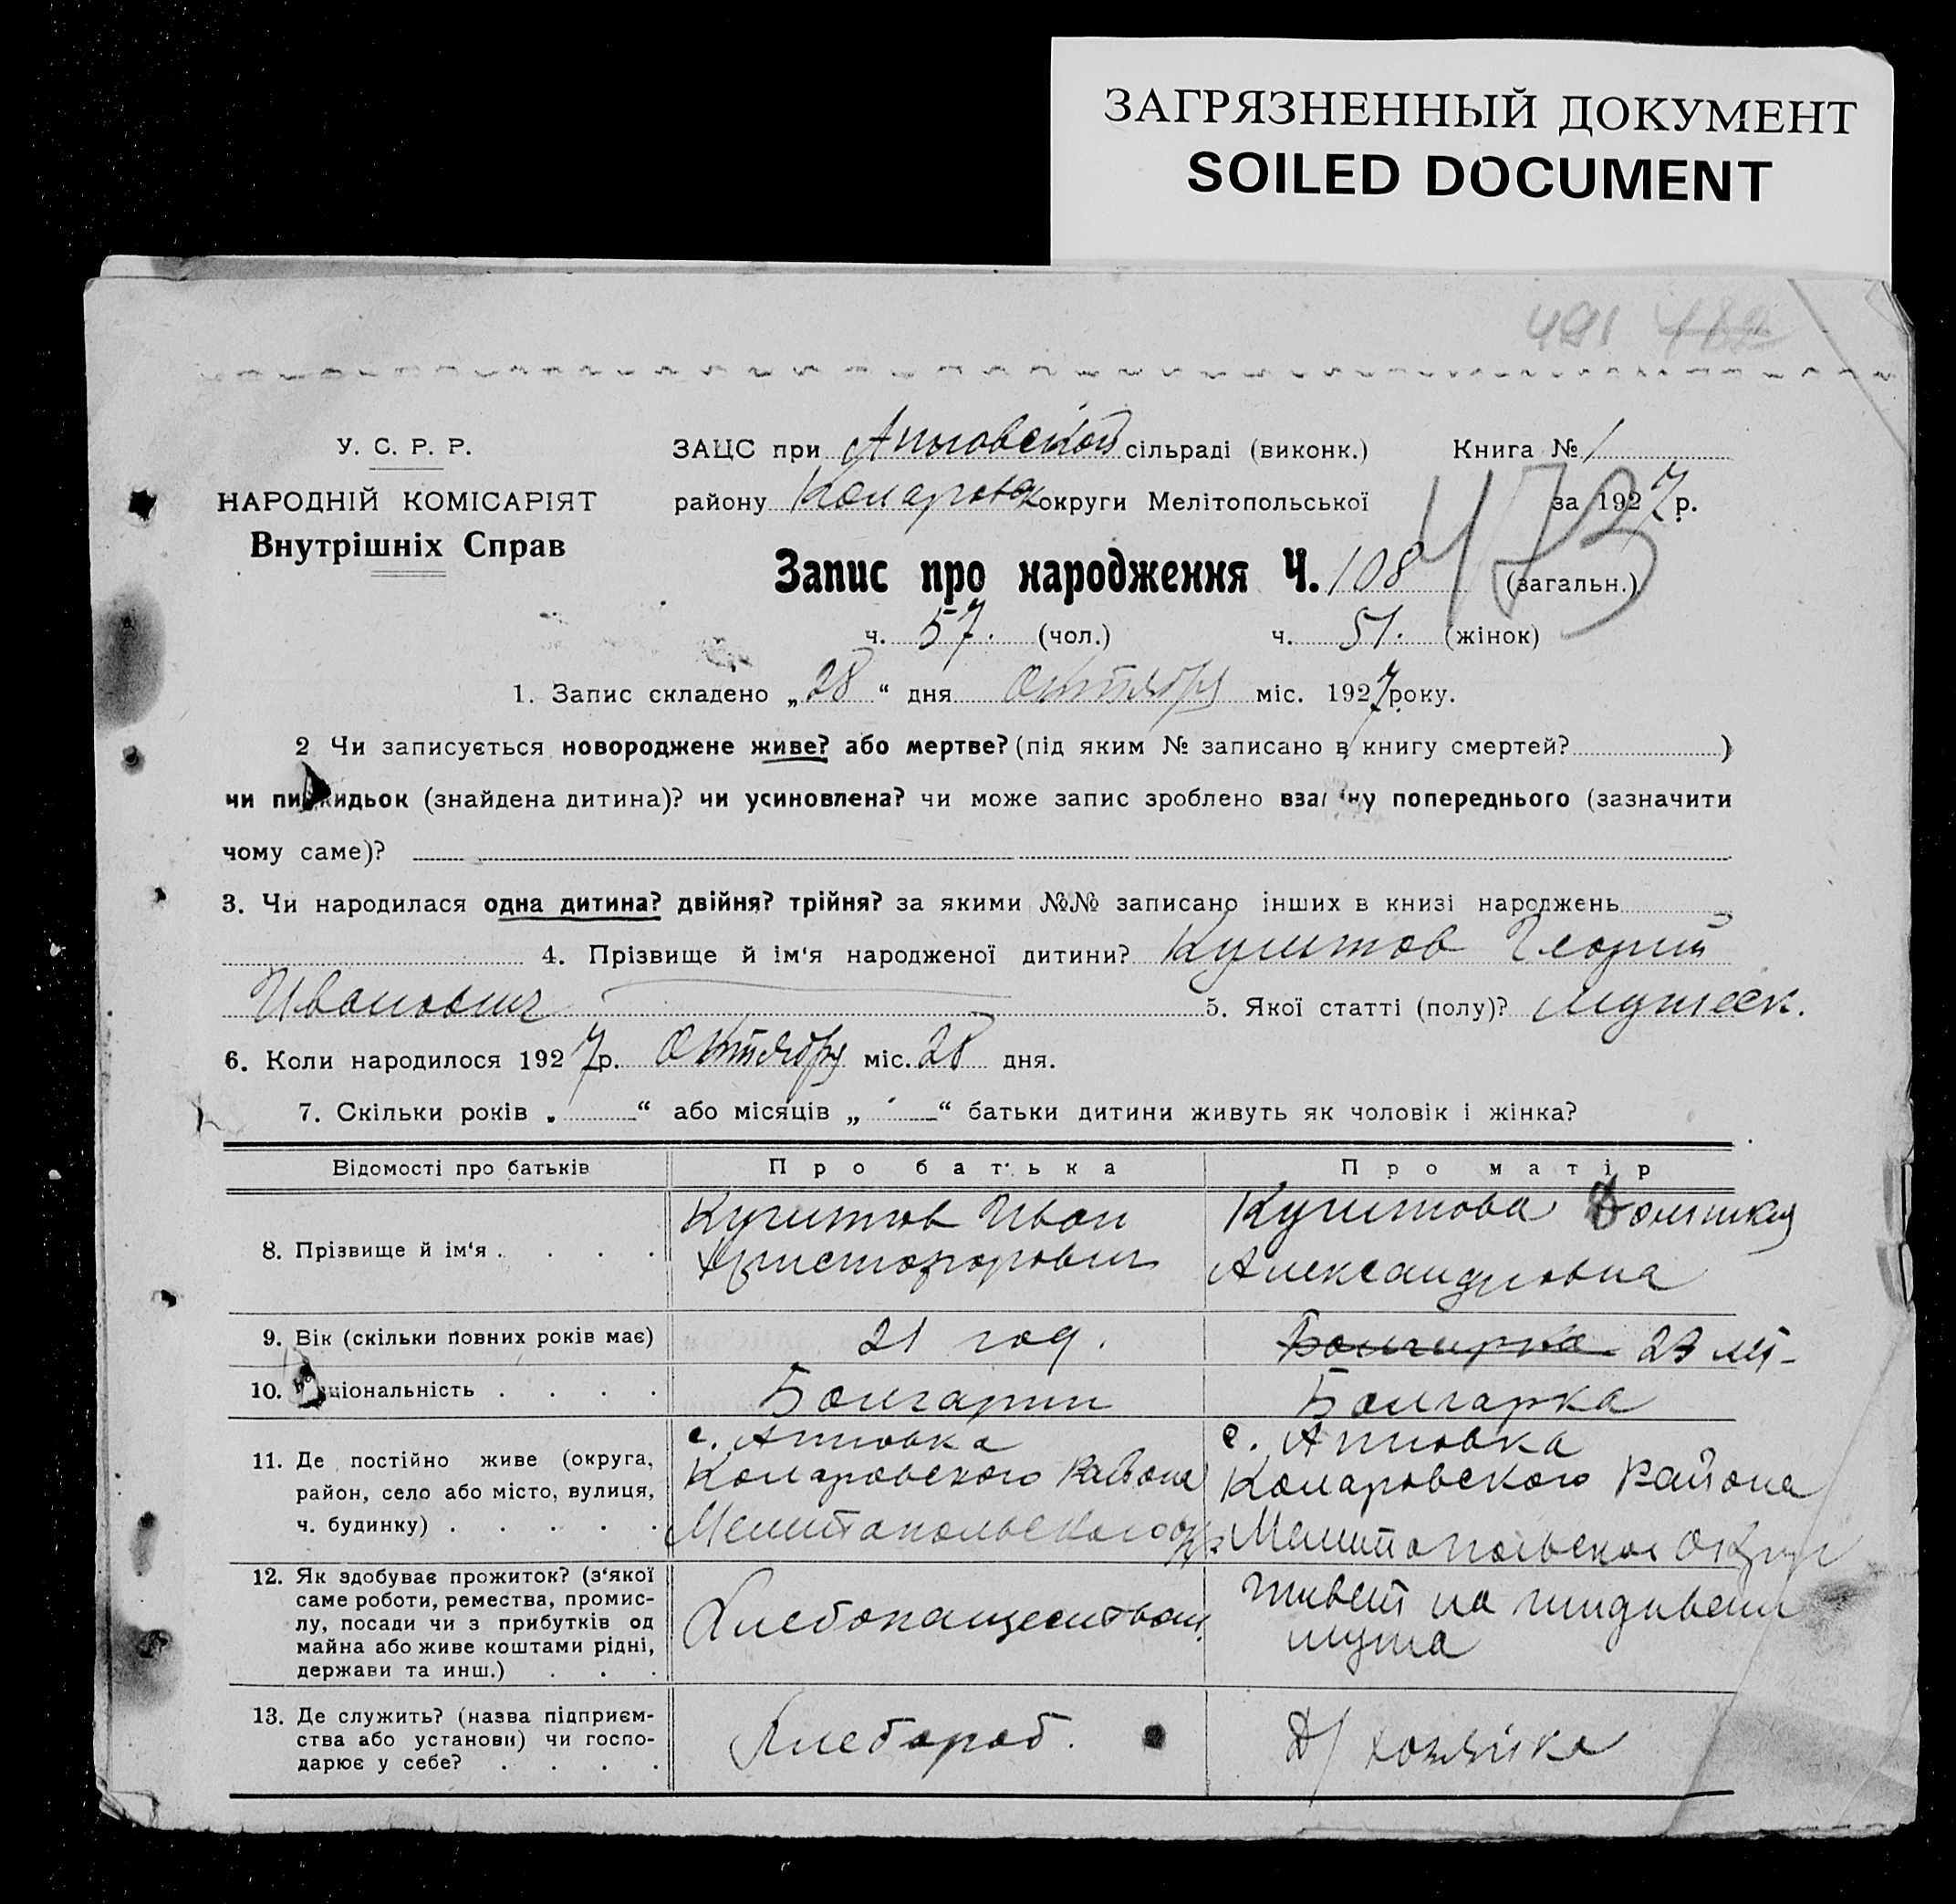 ЗАГРЯЗНЕННЫЙ ДОКУМЕНТ
SOILED DOCUMENT
491 482
У. С. Р. Р.
НАРОДНІЙ КОМІСАРІЯТ
Внутрішніх Справ
ЗАЦС при Анновской сільраді (виконк.) Книга № 1
району Комаровск округи Мелітопольської за 1927 р.
473
Запис про народження Ч. 108 (загальн.)
ч. 57. (чол.) ч. 51. (жінок)
1. Запис складено „28“ дня Октября міс. 1927 року.
2 Чи записується новороджене живе? або мертве? (під яким № записано в книгу смертей? )
чи підкидьок (знайдена дитина)? чи усиновлена? чи може запис зроблено взаміну попереднього (зазначити
чому саме)?
3. Чи народилася одна дитина? двійня? трійня? за якими №№ записано інших в книзі народжень
4. Прізвище й ім‘я народженої дитини? Георгий
Иванович 5. Якої статті (полу)? Мужеск.
6. Коли народилося 1927 р. Октября міс. 28 дня.
7. Скільки років „ “ або місяців „ “ батьки дитини живуть як чоловік і жінка?
Відомості про батьків Про батька Про матір
8. Прізвище й ім‘я . . . .
Иван
Христофорович
Александровна
9. Вік (скільки повних років має) 21 год. Болгарка 23 лет
10. Національність . . . . Болгарин Болгарка
11. Де постійно живе (округа,
район, село або місто, вулиця,
ч. будинку) . . . . .
с. Анновка
Комаровского Района
Мелитопольского окр.
с. Анновка
Комаровского Района
Мелитопольского Округа
12. Як здобуває прожиток? (з‘якої
саме роботи, ремества, промис-
лу, посади чи з прибутків од
майна або живе коштами рідні,
держави та инш.) . . .
Хлебопашеством
живет на иждивении
мужа
13. Де служить? (назва підприєм-
ства або установи) чи госпо-
дарює у себе? . . . .
Хлебороб.
Д/хозяйка